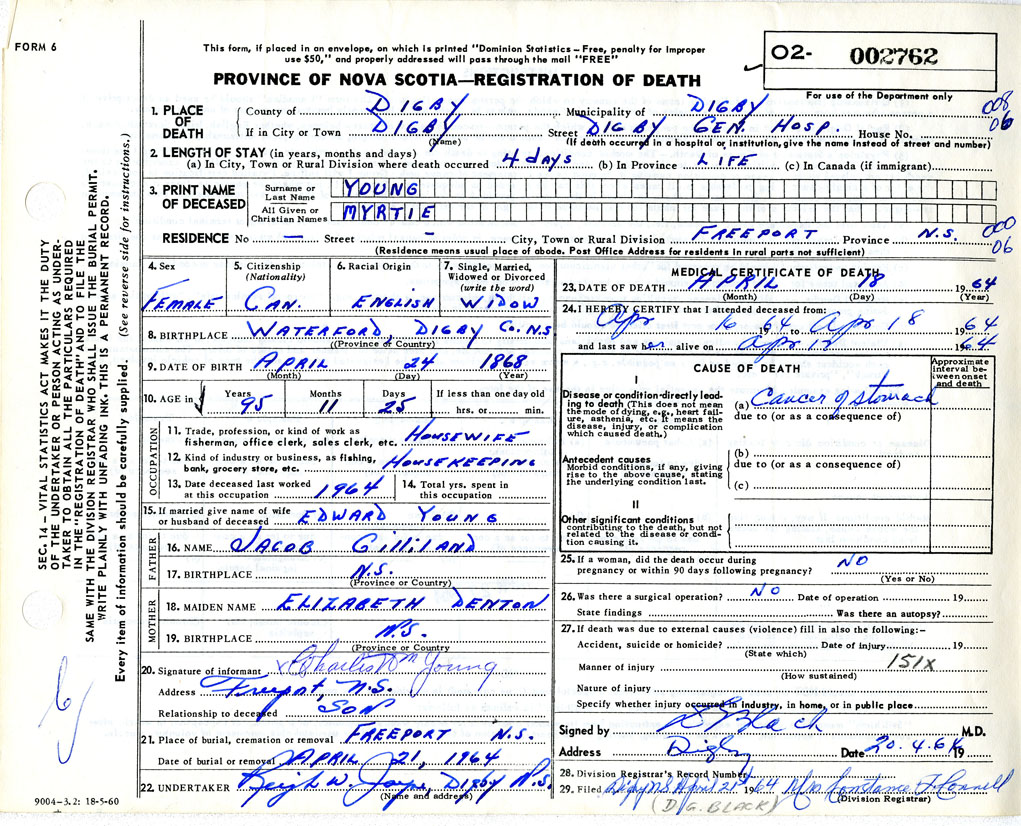 FORM 6
This form, if placed in an envelope, on which is printed "Dominion Statistics – Free, penalty for improper
use $50," and properly addressed will pass through the mail "FREE"
PROVINCE OF NOVA SCOTIA—REGISTRATION OF DEATH
O2- 002762
For use of the Department only
1. PLACE OF DEATH
County of DIGBY Municipality of DIGBY
008
06
If in City or Town DIGBY Street DIGBY GEN. HOSP. House No.
(Name) (If death occurred in a hospital or institution, give the name instead of street and number)
2. LENGTH OF STAY (in years, months and days)
(a) In City, Town or Rural Division where death occurred 4 days (b) In Province LIFE (c) In Canada (if immigrant)
3. PRINT NAME OF DECEASED
Surname or Last Name YOUNG
All Given or Christian Names MYRTIE
RESIDENCE No — Street - City, Town or Rural Division FREEPORT Province N.S.
000
06
(Residence means usual place of abode. Post Office Address for residents in rural parts not sufficient)
4. Sex
FEMALE
5. Citizenship
(Nationality)
CAN.
6. Racial Origin
ENGLISH
7. Single, Married,
Widowed or Divorced
(write the word)
WIDOW
8. BIRTHPLACE WATERFORD, DIGBY Co. N.S
(Province or Country)
9. DATE OF BIRTH APRIL 24 1868
(Month) (Day) (Year)
10. AGE in Years Months Days If less than one day old
95 11 25 hrs. or min.
OCCUPATION
11. Trade, profession, or kind of work as
fisherman, office clerk, sales clerk, etc. HOUSEWIFE
12. Kind of industry or business, as fishing,
bank, grocery store, etc. HOUSEKEEPING
13. Date deceased last worked
at this occupation 1964
14. Total yrs. spent in
this occupation
15. If married give name of wife
or husband of deceased EDWARD YOUNG
FATHER
16. NAME JACOB GILLILAND
17. BIRTHPLACE N.S.
(Province or Country)
MOTHER
18. MAIDEN NAME ELIZABETH DENTON
19. BIRTHPLACE N.S.
(Province or Country)
20. Signature of informant x Charles Wm Young
Address Freeport, N.S.
Relationship to deceased SON
21. Place of burial, cremation or removal FREEPORT N.S.
Date of burial or removal APRIL 21, 1964
22. UNDERTAKER W. Jayne, DIGBY N.S.
(Name and address)
9004-3.2: 18-5-60
MEDICAL CERTIFICATE OF DEATH
23. DATE OF DEATH APRIL 18 1964
(Month) (Day) (Year)
24. I HEREBY CERTIFY that I attended deceased from:
Apr 16 1964 to Apr 18 1964
and last saw her alive on Apr 18 1964
CAUSE OF DEATH
Approximate
interval be-
tween onset
and death
I
Disease or condition directly lead-
ing to death (This does not mean
the mode of dying, e.g., heart fail-
ure, asthenia, etc. It means the
disease, injury, or complication
which caused death.)
(a) Cancer of stomach
due to (or as a consequence of)
Antecedent causes
Morbid conditions, if any, giving
rise to the above cause, stating
the underlying condition last.
(b)
due to (or as a consequence of)
(c)
II
Other significant conditions
contributing to the death, but not
related to the disease or condi-
tion causing it.
25. If a woman, did the death occur during
pregnancy or within 90 days following pregnancy? NO
(Yes or No)
26. Was there a surgical operation? NO Date of operation 19
State findings Was there an autopsy?
27. If death was due to external causes (violence) fill in also the following:–
Accident, suicide or homicide? Date of injury 19
(State which)
Manner of injury 151x
(How sustained)
Nature of injury
Specify whether injury occurred in industry, in home, or in public place
Signed by D Black M.D.
Address Digby Date 20.4.64 19
28. Division Registrar's Record Number
29. Filed Digby N.S. April 21st 1964 Constance
(Division Registrar)
(D.G. BLACK)
SEC. 14 – VITAL STATISTICS ACT MAKES IT THE DUTY
OF THE UNDERTAKER OR PERSON ACTING AS UNDER-
TAKER TO OBTAIN ALL THE PARTICULARS REQUIRED
IN THE "REGISTRATION OF DEATH" AND TO FILE THE
SAME WITH THE DIVISION REGISTRAR WHO SHALL ISSUE THE BURIAL PERMIT.
WRITE PLAINLY WITH UNFADING INK. THIS IS A PERMANENT RECORD.
Every item of information should be carefully supplied. (See reverse side for instructions.)